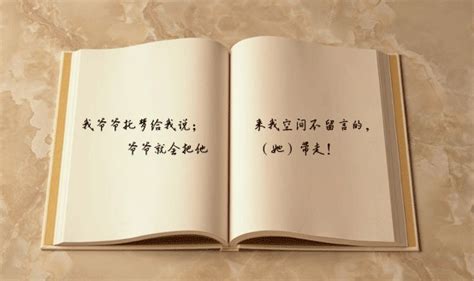 我爷爷托梦给我说；
来我空间不留言的，
爷爷就会把他
（她）带走！